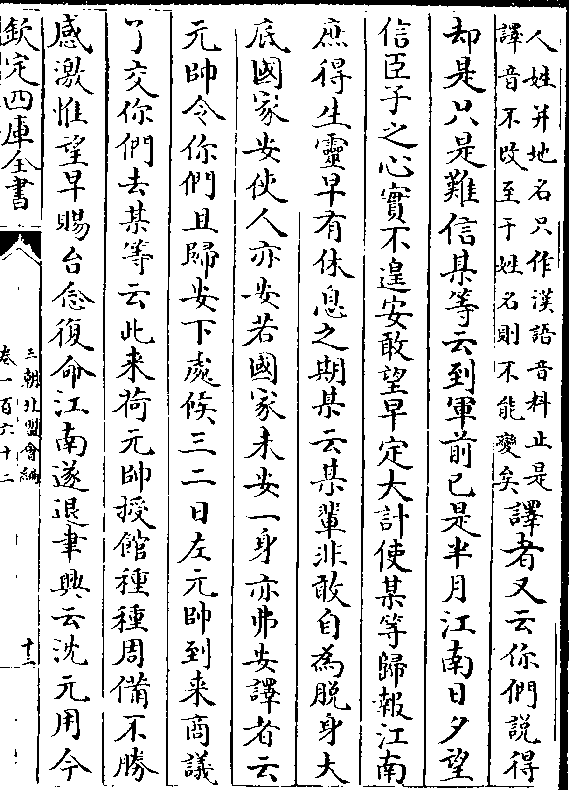 人姓并地名只作漢語音料止是
譯音不改至于姓名則不能變矣
譯者又云你們說得
却是只是難信某等云到軍前已是半月江南日夕望
信臣子之心實不遑安敢望早定大計使某等歸報江南
庶得生靈早有休息之期某云某輩非敢自為脫身大
底國家安使人亦安若國家未安一身亦弗安譯者云
元帥令你們且歸安下處候三二日左元帥到来商議
了交你們去某等云此来荷元帥授館種種周備不勝
感激惟望早賜台念復命江南遂退聿興云沈元用今
欽定四庫全書
三朝北盟會編
卷一百六十二
十三